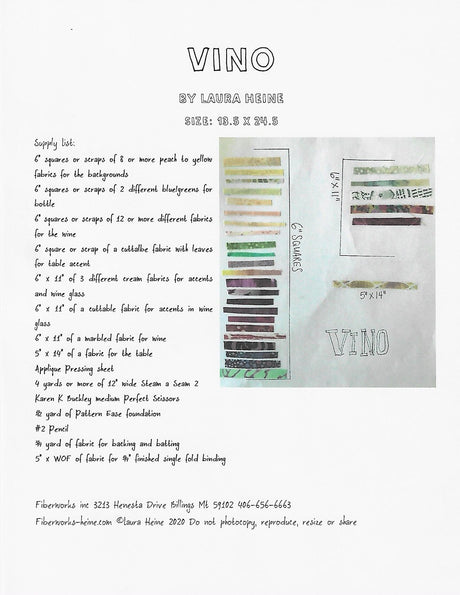 VINO
BY LAURA HEINE
SIZE: 13.5 X 24.5
Supply list:
6" squares or scraps of 8 or more peach to yellow
fabrics for the backgrounds
6" squares or scraps of 2 different blue/greens for
bottle
6" squares or scraps of 12 or more different fabrics
for the wine
6" square or scrap of a cuttalbe fabric with leaves
for table accent
6" x 11" of 3 different cream fabrics for accents
and wine glass
6" x 11" of a cuttable fabric for accents in wine
glass
6" x 11" of a marbled fabric for wine
5" x 14" of a fabric for the table
Applique Pressing sheet
4 yards or more of 12" wide Steam a Seam 2
Karen K Buckley medium Perfect Scissors
½ yard of Pattern Ease foundation
#2 Pencil
¾ yard of fabric for backing and batting
5" x WOF of fabric for ¾" finished single fold binding
6" SQUARES
6" X 11"
5" X 14"
VINO
Fiberworks inc 3213 Henesta Drive Billings Mt 59102 406-656-6663
Fiberworks-heine.com ©Laura Heine 2020 Do not photocopy, reproduce, resize or share